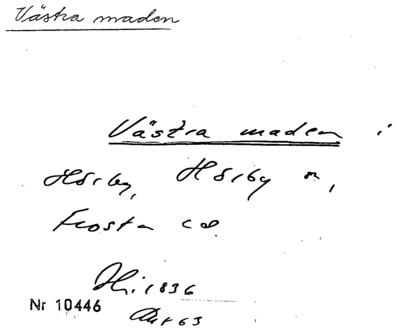 Västra maden
Västra maden i
Hörby, Hörby sn,
Frosta hd.
Hi. 1836
Nr 10446
Akt 63